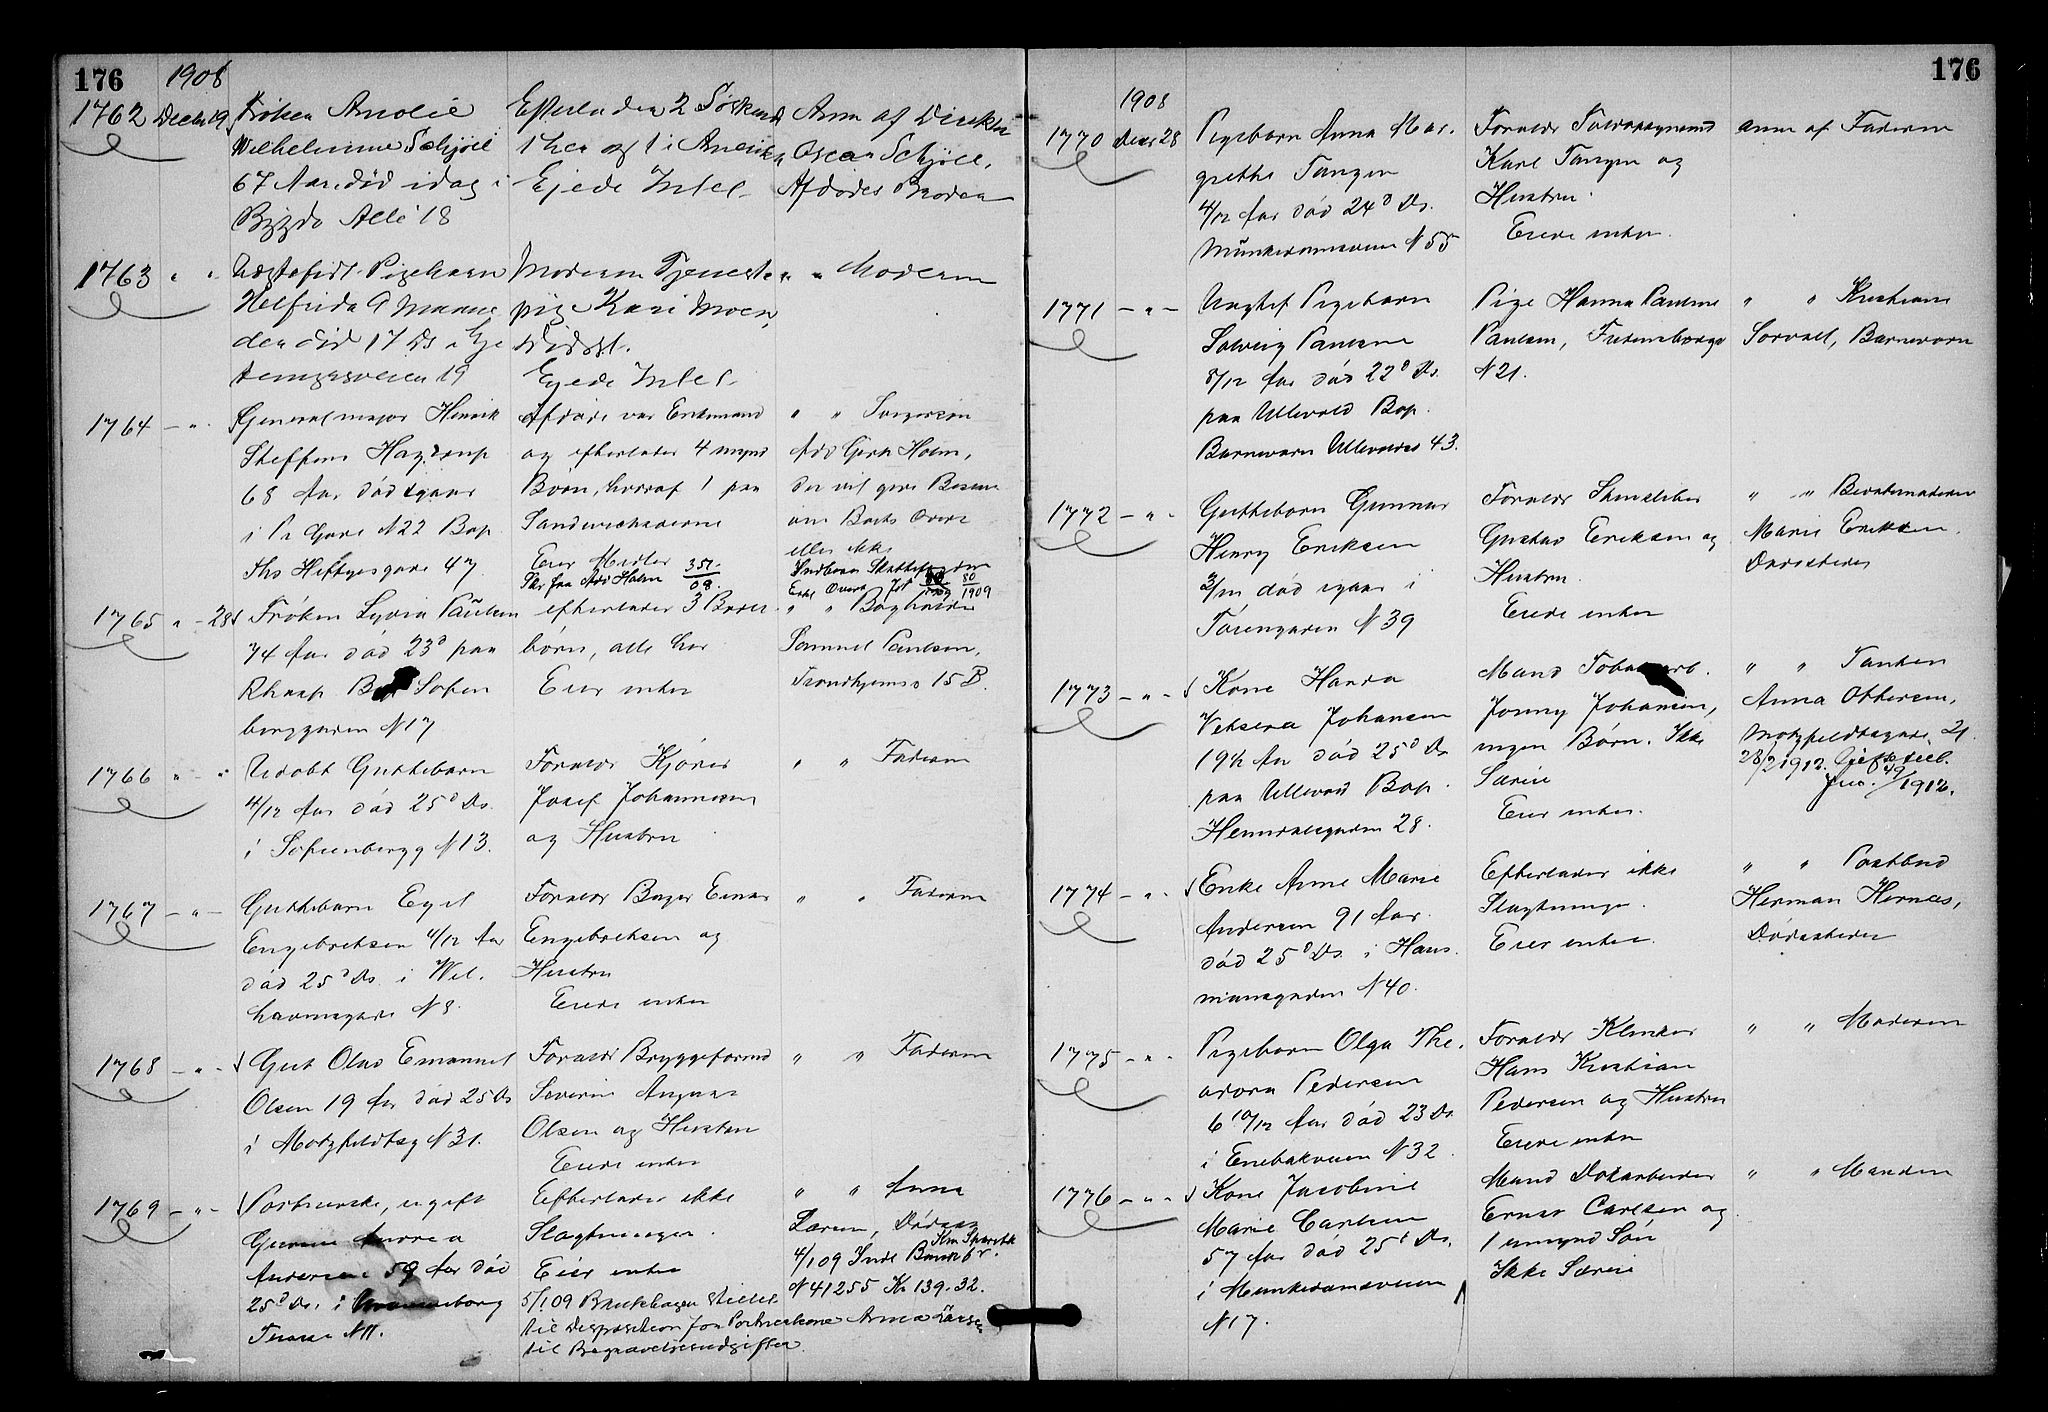 176
1908
1762 Decbr 19
Frøken Amolie
Wilhelmine Schjøll
67 Aar død idag i
Bygdø Allé 18
Efterlader 2 Søskend
1 her og 1 i Amerika
Ejede Intet
Anm af Direktør
Oscar Schjöll,
Afdødes Broder
1763 " "
Uægtefødt Pigebarn
Helfrida 9 Maane
der død 17 Ds i
19
Moderen Tjeneste
pige Kari Moen,
Ejede Intet
" " Moderen
1764 - " -
Generalmajor Henrik
Steffens Hagerup
68 Aar død igaar
i Pr Gade N 22 Bop
Ths Heftyesgade 47
Afdøde var Enkemand
og efterlader 4 mynd
Børn, hvoraf 1 paa
Sandwichøerne
Eier Midler
Skr fra Adv Holm 351/09.
" " Svigersøn
Adv Gerh Holm,
der vil give Besked
om Boets Overt
eller ikke
1909
1765 " - 28
Frøken Lydia Paulsen
74 Aar død 23d paa
Rhosp Bop Sofien
berggaden N 17
efterlader 3 Broder
børn, alle her
Eier intet
" " Bogholder
Samuel Paulsen,
Trondhjemsv 15 B.
1766 " - "
Udøbt Guttebarn
4/12 Aar død 25d Ds.
i Sofienbergg N 13.
Forældr Kjører
Josef Johannesen
og Hustru
" " Faderen
1767 - " -
Guttebarn Egil
Engebretsen 4/12 Aar
død 25d Ds. i Wil.
helmsgade N 8.
Forældr Bager Einar
Engebretsen og
Hustru
Eiede intet
" " Faderen
1768 - " -
Gut Olav Emanuel
Olsen 19 Aar død 25 Ds
i Motzfeldtsg N 31.
Forældr Bryggeformd
Severin August
Olsen og Hustru
Eiede intet
" " Faderen
1769 - " -
Portnerske, ugift
Gurine Andrea
Andersen 59 Aar død
25d Ds. i
N 11.
Efterlader ikke
Slægtninger.
Eier intet
5/1 09 Bankbogen stillet
til Disposition for Portnerkone Anna Larsen
til Begravelsesudgifter.
" " Anna
Larsen, Dødssted
4/1 09 Indl Bankbr.
N 41255 Kr 139.32.

176
1908
1770 Decbr 28
Pigebarn Anna Mar.
grethe Tangen
4/12 Aar død 24d Ds.
Munkedamsveien N 55
Forældr
Karl Tangen og
Hustru.
Eiede intet.
anm af Faderen
1771 - " -
Uægtef Pigebarn
Solveig Paulsen
8/12 Aar død 22d Ds.
paa Ullevold Bop.
Barnevarn Ullevoldsv 43.
Pige Hanna Pauline
Paulsen, Fredensborgv
N 21.
" " Kristiane
Sorvall, Barnevarn
1772 - " -
Guttebarn Gunnar
Henry Eriksen
død igaar i
Tøiengaden N 39
Forældr
Gustav Eriksen og
Hustru.
Eiede intet
" " Bestemoderen
Marie Eriksen.
Dødsstedet
1773 - " -
Kone Harda
Johansen
19½ Aar død 25d Ds
paa Ullevold Bop.
Heimdalsgaden 28.
Mand Tobaksarb.
Jonny Johansen,
ingen Børn. Ikke
Særeie
Eier intet.
" " Tanten
Anna Ottersen,
Motzfeldtsgade 21.
28/2 1912.
1912.
1774 - " -
Enke Anne Marie
Andersen 91 Aar.
død 25d Ds. i Haus.
mansgaden N 40.
Efterlader ikke
Slægtninge.
Eier intet.
" " Postbud
Herman Hernæs,
Dødsstedet
1775 - " -
Pigebarn Olga The.
odora Pedersen
6 10/12 Aar død 23 Ds.
i Enebakveien N 32.
Forældr Klinker
Hans Kristian
Pedersen og Hustru
Eiede intet
" " Moderen
1776 - " -
Kone Jacobine
Marie Carlsen
57 Aar død 25d Ds.
i Munkedamsveien
N 17.
Mand Dokarbeider
Ernst Carlsen og
1 umynd Søn
Ikke Særeie
" " Manden